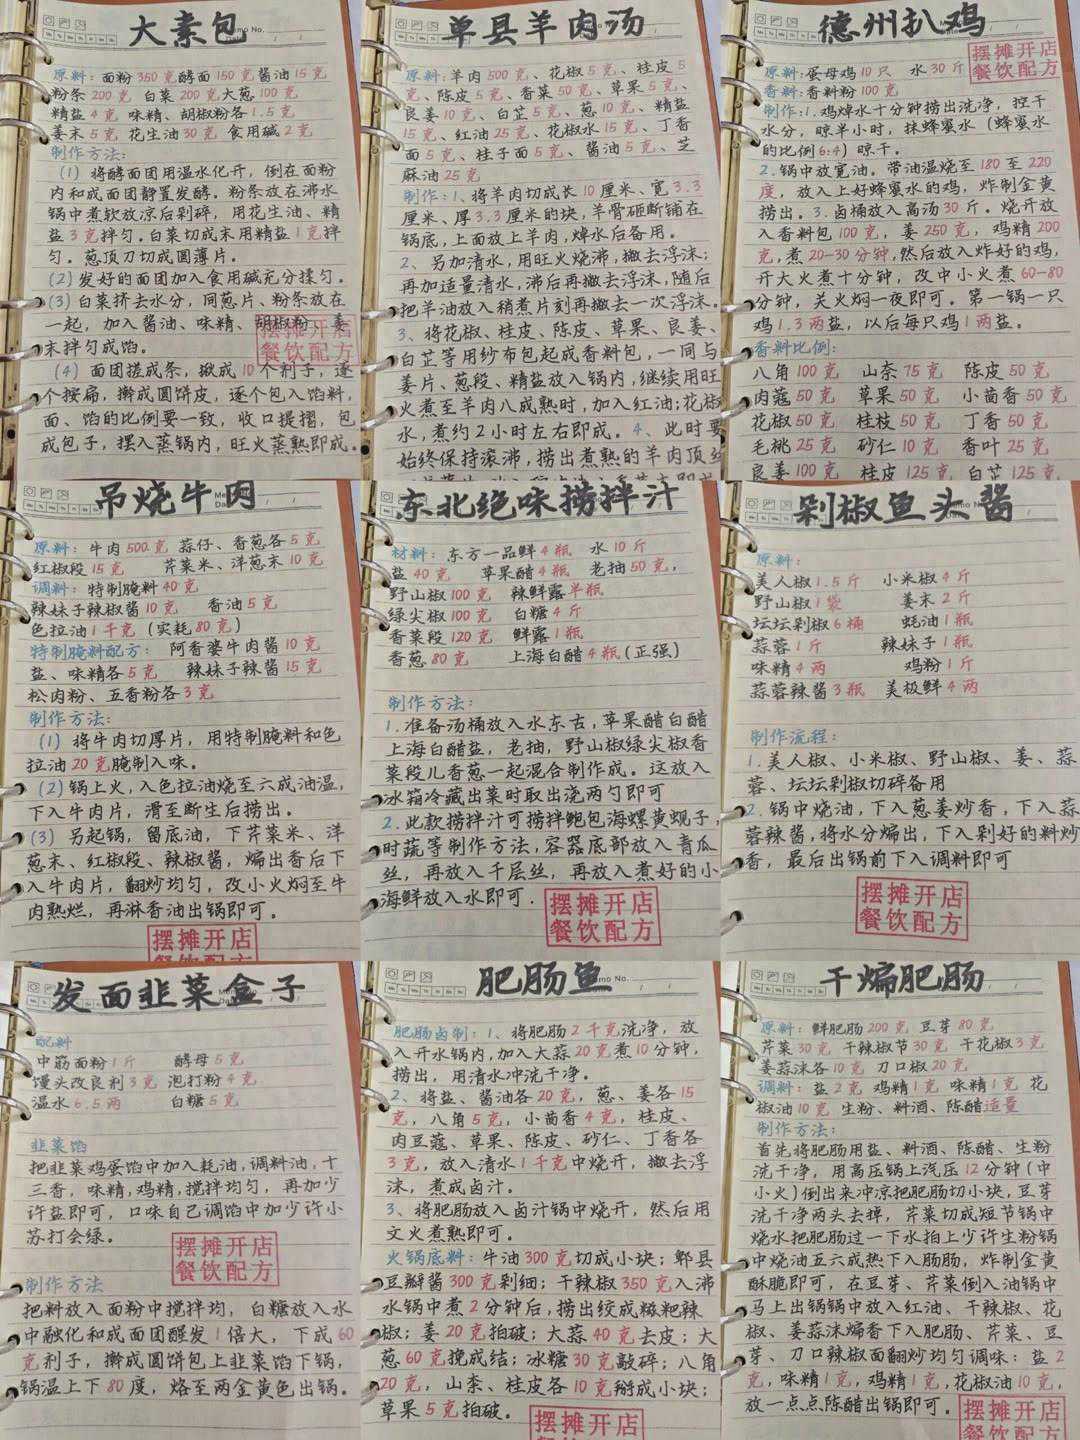 大素包
原料:面粉350克酵面150克酱油15克
粉条200克 白菜200克大葱100克
精盐4克 味精、胡椒粉各1.5克
姜末5克 花生油30克 食用碱2克
制作方法:
(1)将酵面团用温水化开，倒在面粉
内和成面团静置发酵。粉条放在沸水
锅中煮软放凉后剁碎，用花生油、精
盐3克拌匀。白菜切成末用精盐1克拌
匀。葱顶刀切成圆薄片。
(2)发好的面团加入食用碱充分揉匀。
(3)白菜挤去水分，同葱片、粉条放在
一起，加入酱油、味精、胡椒粉、姜
末拌匀成馅。
(4)面团搓成条，揪成10个剂子，逐
个按扁，擀成圆饼皮，逐个包入馅料，
面、馅的比例要一致，收口提摺，包
成包子，摆入蒸锅内，旺火蒸熟即成。
摆摊开店
餐饮配方
单县羊肉汤
原料:羊肉500克、花椒5克、桂皮5
克、陈皮5克、香菜50克、草果5克、
良姜10克、白芷5克、葱10克、精盐
15克、红油25克、花椒水15克、丁香
面5克、桂子面5克、酱油5克、芝
麻油25克
制作:1、将羊肉切成长10厘米、宽3.3
厘米、厚3.3厘米的块，羊骨砸断铺在
锅底，上面放上羊肉，焯水后备用。
2、另加清水，用旺火烧沸，撇去浮沫;
再加适量清水，沸后再撇去浮沫，随后
把羊油放入稍煮片刻再撇去一次浮沫。
3、将花椒、桂皮、陈皮、草果、良姜、
白芷等用纱布包起成香料包，一同与
姜片、葱段、精盐放入锅内，继续用旺
火煮至羊肉八成熟时，加入红油;花椒
水，煮约2小时左右即成。4、此时要
始终保持滚沸，捞出煮熟的羊肉顶丝
德州扒鸡
摆摊开店
餐饮配方
原料:蛋母鸡10只 水30斤
香料:香料粉100克
制作:1.鸡焯水十分钟捞出洗净，控干
水分，晾半小时，抹蜂蜜水(蜂蜜水
的比例6:4)晾干。
2.锅中放宽油。带油温烧至180至220
度，放入上好蜂蜜水的鸡，炸制金黄
捞出。3.卤桶放入高汤30斤。烧开放
入香料包100克，姜250克，鸡精200
克，煮20-30分钟，然后放入炸好的鸡，
开大火煮十分钟，改中小火煮60-80
分钟，关火焖一夜即可。第一锅一只
鸡1.3两盐，以后每只鸡1两盐。
香料比例:
八角100克 山奈75克 陈皮50克
肉蔻50克 草果50克 小茴香50克
花椒50克 桂枝50克 丁香50克
毛桃25克 砂仁10克 香叶25克
良姜100克 桂皮125克 白芷125克
吊烧牛肉
原料:牛肉500克 蒜仔、香葱各5克
红椒段15克 芹菜米、洋葱末10克
调料:特制腌料40克
辣妹子辣椒酱10克 香油5克
色拉油1千克(实耗80克)
特制腌料配方: 阿香婆牛肉酱10克
盐、味精各5克 辣妹子辣酱15克
松肉粉、五香粉各3克
制作方法:
(1)将牛肉切厚片，用特制腌料和色
拉油20克腌制入味。
(2)锅上火，入色拉油烧至六成油温，
下入牛肉片，滑至断生后捞出。
(3)另起锅，留底油，下芹菜米、洋
葱末、红椒段、辣椒酱，煸出香后下
入牛肉片，翻炒均匀，改小火焖至牛
肉熟烂，再淋香油出锅即可。
摆摊开店
餐饮配方
东北绝味捞拌汁
材料:东方一品鲜4瓶 水10斤
盐40克 苹果醋4瓶 老抽50克，
野山椒100克 辣鲜露半瓶
绿尖椒100克 白糖4斤
香菜段120克 鲜露1瓶
香葱80克 上海白醋4瓶(正强)
制作方法:
1.准备汤桶放入水东古，苹果醋白醋
上海白醋盐，老抽，野山椒绿尖椒香
菜段儿香葱一起混合制作成。这放入
冰箱冷藏出菜时取出浇两勺即可
2.此款捞拌汁可捞拌鲍包海螺黄蚬子，
时蔬等制作方法，容器底部放入青瓜
丝，再放入千层丝，再放入煮好的小
海鲜放入水即可.
摆摊开店
餐饮配方
剁椒鱼头酱
原料:
美人椒1.5斤 小米椒4斤
野山椒1袋 姜末2斤
坛坛剁椒6桶 蚝油1瓶
蒜蓉1斤 辣妹子1瓶
味精4两 鸡粉1斤
蒜蓉辣酱3瓶 美极鲜4两
制作流程:
1.美人椒、小米椒、野山椒、姜、蒜
蓉、坛坛剁椒切碎备用
2.锅中烧油，下入葱姜炒香，下入蒜
蓉辣酱，将水分煸出，下入剁好的料炒
香，最后出锅前下入调料即可
摆摊开店
餐饮配方
发面韭菜盒子
配料
中筋面粉1斤 酵母5克
馒头改良剂3克 泡打粉4克
温水6.5两 白糖5克
韭菜馅
把韭菜鸡蛋馅中加入耗油，调料油，十
三香，味精，鸡精，搅拌均匀，再加少
许盐即可，口味自己调馅中加少许小
苏打会绿。
摆摊开店
餐饮配方
制作方法
把料放入面粉中搅拌均，白糖放入水
中融化和成面团醒发1倍大，下成60
克剂子，擀成圆饼包上韭菜馅下锅，
锅温上下80度，烙至两金黄色出锅。
肥肠鱼
肥肠卤制:1、将肥肠2千克洗净，放
入开水锅内，加入大蒜20克煮10分钟，
捞出，用清水冲洗干净。
2、将盐、酱油各20克，葱、姜各15
克，八角5克，小茴香4克，桂皮、
肉豆蔻、草果、陈皮、砂仁、丁香各
3克，放入清水1千克中烧开，撇去浮
沫，煮成卤汁。
3、将肥肠放入卤汁锅中烧开，然后用
文火煮熟即可。
火锅底料:牛油300克切成小块;郫县
豆瓣酱300克剁细;干辣椒350克入沸
水锅中煮2分钟后，捞出绞成糍粑辣
椒;姜20克拍破;大蒜40克去皮;大
葱60克挽成结;冰糖30克敲碎;八角
20克，山柰、桂皮各10克掰成小块;
草果5克拍破。
摆摊开店
餐饮配方
干煸肥肠
原料:鲜肥肠200克 豆芽80克
芹菜30克 干辣椒节30克 干花椒3克
姜蒜沫各10克 刀口椒20克
调料:盐2克 鸡精1克 味精1克 花
椒油10克 生粉、料酒、陈醋适量
制作方法:
首先将肥肠用盐、料酒、陈醋、生粉
洗干净，用高压锅上汽压12分钟(中
小火)倒出来冲凉把肥肠切小块，豆芽
洗干净两头去掉，芹菜切成短节锅中
烧水把肥肠过一下水拍上少许生粉锅
中烧油五六成热下入肠肠，炸制金黄
酥脆即可，在豆芽、芹菜倒入油锅中
马上出锅锅中放入红油、干辣椒、花
椒、姜蒜沫煸香下入肥肠、芹菜、豆
芽、刀口辣椒面翻炒均匀调味:盐2
克，味精1克，鸡精1克，花椒油10克，
放一点点陈醋出锅即可。
摆摊开店
餐饮配方